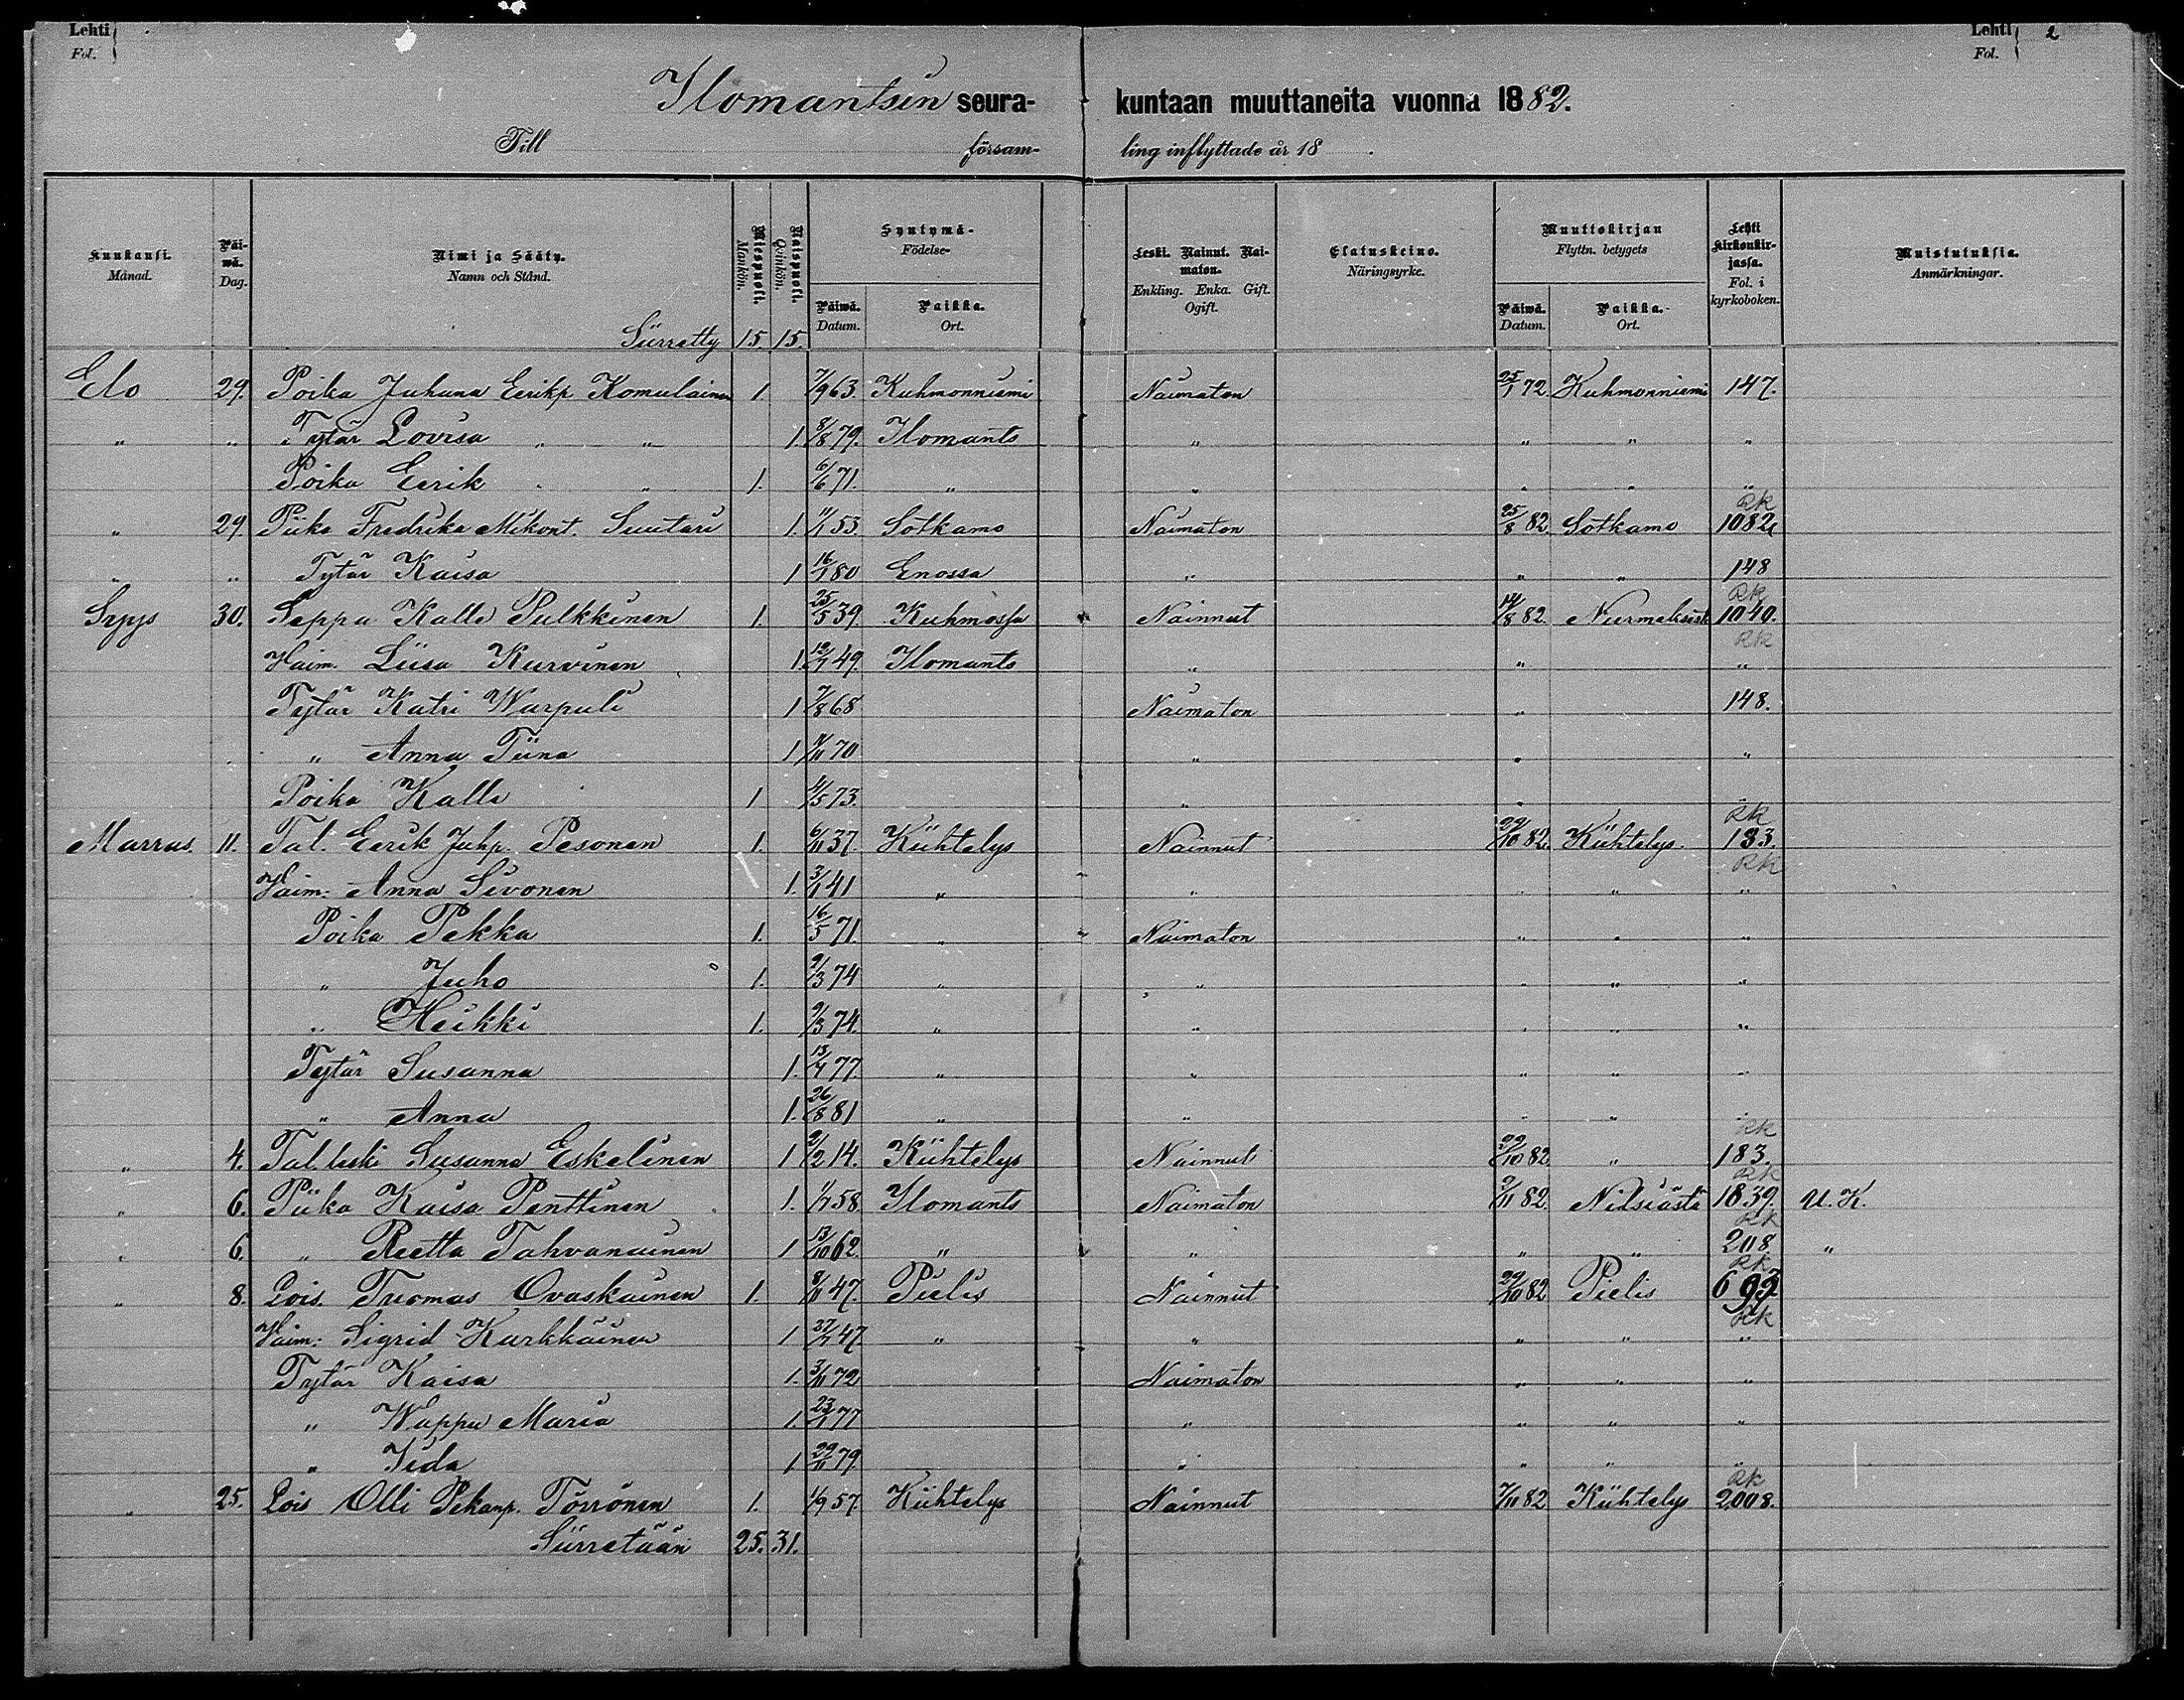 Lehti Fol. Lehti Fol. 2
Ilomantsin seura- kuntaan muuttaneita vuonna 1882.
Till försam- ling inflyttade år 18 .
Kuukausi. Månad. Päiwä. Dag. Nimi ja Sääty. Namn och Stånd. Miespuoli. Mankön. Naispuoli. Qvinkön. Syntymä- Födelse- Päiwä. Datum. Paikka. Ort. Leski. Nainut. Naimaton. Enkling. Enka. Gift. Ogift. Elatuskeino. Näringsyrke. Muuttokirjan Flyttn. betygets Päiwä. Datum. Paikka. Ort. Lehti kirkonkirjassa. Fol. i kyrkoboken. Muistutuksia. Anmärkningar.
Siirretty 15. 15.
Elo 29. Poika Juhana Eerikp Komulainen 1. 7/9 63. Kuhmonniemi Naimaton 25/1 72. Kuhmonniemi 147.
" " Tytär Lovisa " " 1. 8/8 79. Ilomants " " " "
Poika Eerik " " 1. 6/6 71. " " " " "
" 29. Piika Fredrika Mikont. Suutari 1. 11/1 53. Sotkamo Naimaton 25/8 82. Sotkamo RK 1082
" " Tytär Kaisa 1 16/1 80 Enossa " " " 148
Syys 30. Seppä Kalle Pulkkinen 1. 25/5 39. Kuhmossa Nainnut 14/8 82. Nurmeksist RK 1040.
Vaim. Liisa Kurvinen 1 12/7 49. Ilomants " " RK "
Tytär Katri Warpuli 1 7/8 68 Naimaton " 148.
" Anna Tiina 1 11/11 70 " " "
Poika Kalle 1 4/5 73. " " "
Marras. 11. Tal. Eerik Juhp. Pesonen 1. 6/11 37. Kiihtelys Nainnut 29/10 82. Kiihtelys RK 183.
Vaim: Anna Sivonen 1. 3/1 41 " " " " RK "
Poika Pekka 1. 16/5 71. " Naimaton " " "
" Juho 1. 9/3 74 " " " " "
" Heikki 1. 9/3 74. " " " " "
Tytär Susanna 1. 13/4 77. " " " " "
" Anna 1. 26/8 81 " " " " "
" 4. Tal. leski Susanna Eskelinen 1 2/2 14. Kiihtelys Nainnut 29/10 82 " RK 183.
" 6. Piika Kaisa Penttinen 1. 1/7 58. Ilomants Naimaton 2/11 82. Nilsiästä RK 1839. U. K.
" 6. " Reetta Tahvanainen 1 13/10 62. " " " " RK 208. "
" 8. Lois. Tuomas Ovaskainen 1. 8/11 47. Pielis Nainnut 29/10 82 Pielis RK 697
Vaim: Sigrid Kurkkäinen 1 27/7 47 " " " " RK "
Tytär Kaisa 1. 3/11 72 Naimaton " " "
" Wappu Maria 1. 23/1 77 " " " "
" Iida 1 29/11 79. " " " "
" 25. Lois Olli Pekanp. Törrönen 1. 1/9 57. Kiihtelys Nainnut 7/11 82 Kiihtelys RK 2008.
Siirretään 25. 31.